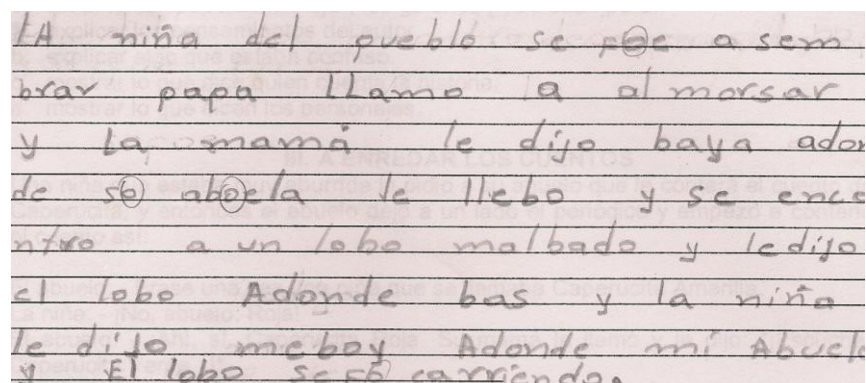 LA niña del pueblo se foe a sem
brar papa LLamo la al morsar
y La mamá le dijo baya adon
de so aboela le llebo y se ence
ntro a un lobo malbado y ledijo
el lobo Adonde bas y la niña
le dijo meboy Adonde mi Abuela
y El lobo carriendo.